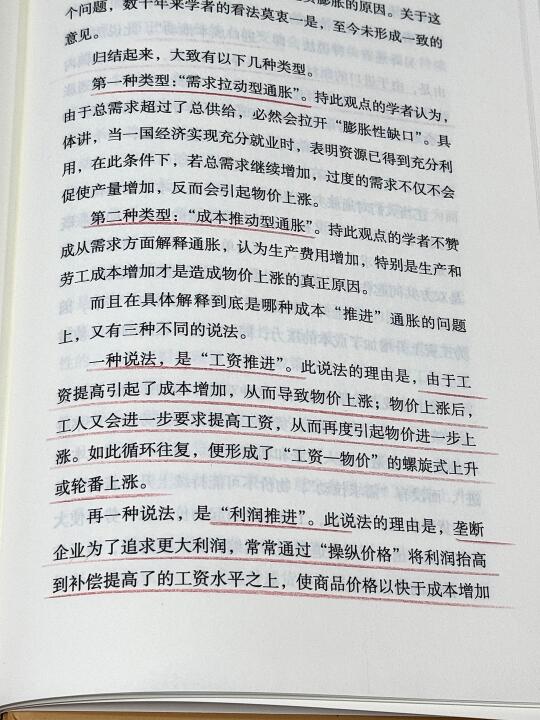 膨胀的原因。关于这
个问题，数十年来学者的看法莫衷一是，至今未形成一致的
意见。
归结起来，大致有以下几种类型。
第一种类型：“需求拉动型通胀”。持此观点的学者认为，
由于总需求超过了总供给，必然会拉开“膨胀性缺口”。具
体讲，当一国经济实现充分就业时，表明资源已得到充分利
用，在此条件下，若总需求继续增加，过度的需求不仅不会
促使产量增加，反而会引起物价上涨。
第二种类型：“成本推动型通胀”。持此观点的学者不赞
成从需求方面解释通胀，认为生产费用增加，特别是生产和
劳工成本增加才是造成物价上涨的真正原因。
而且在具体解释到底是哪种成本“推进”通胀的问题
上，又有三种不同的说法。
一种说法，是“工资推进”。此说法的理由是，由于工
资提高引起了成本增加，从而导致物价上涨；物价上涨后，
工人又会进一步要求提高工资，从而再度引起物价进一步上
涨。如此循环往复，便形成了“工资—物价”的螺旋式上升
或轮番上涨。
再一种说法，是“利润推进”。此说法的理由是，垄断
企业为了追求更大利润，常常通过“操纵价格”将利润抬高
到补偿提高了的工资水平之上，使商品价格以快于成本增加